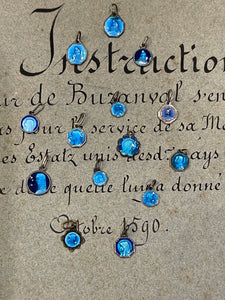 Instruction
ur de Buzanval s'en
pour le service de sa Ma
es Estatz unis desd. pays
e de quelle luy a donné
Octobre 1590.